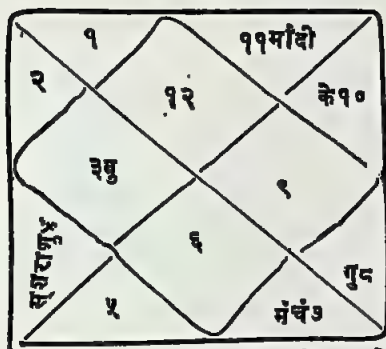 १
११मांदी
२
१२
के१०
३बु
९
सूशराशु४
६
गु८
५
मंचं७